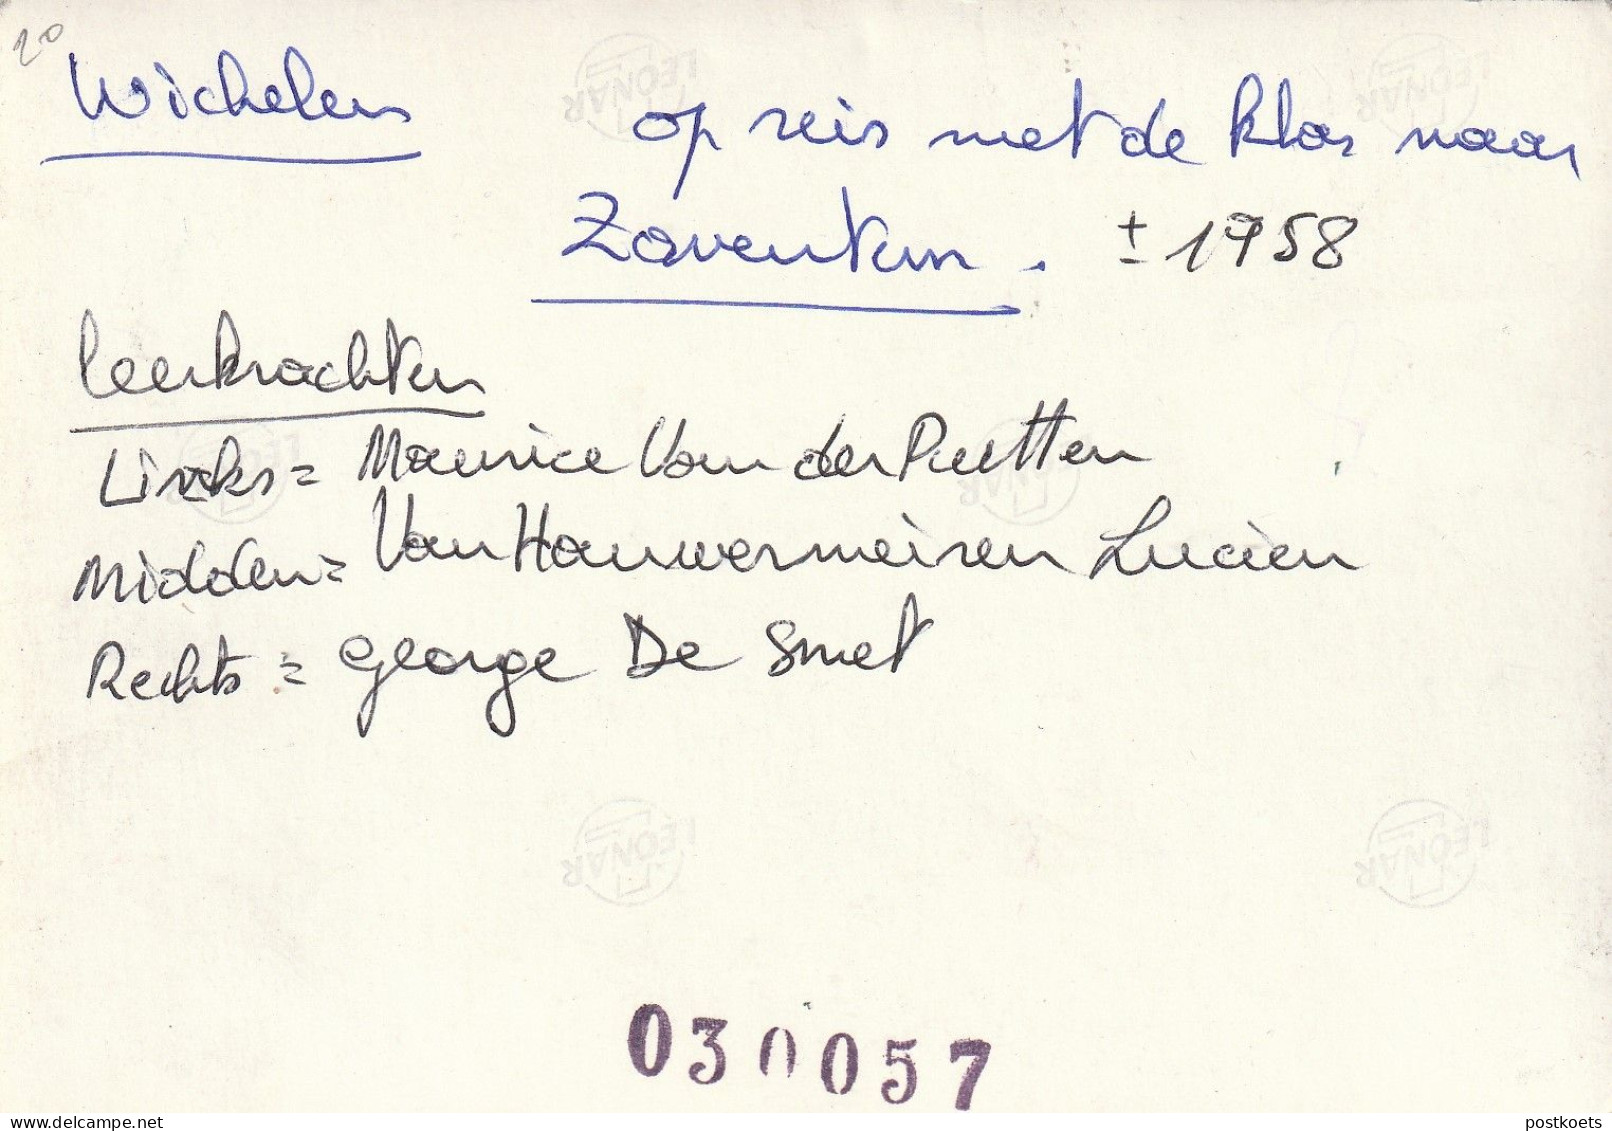 20
Wichelen
op reis met de klas naar
Zaventem. ± 1958
Leerkrachten
Links = Maurice Van der Putten
Midden = Van Hauwermeiren Lucien
Rechts = George De Smet
LEONAR
LEONAR
LEONAR
LEONAR
LEONAR
LEONAR
030057
www.delcampe.net
postkoets